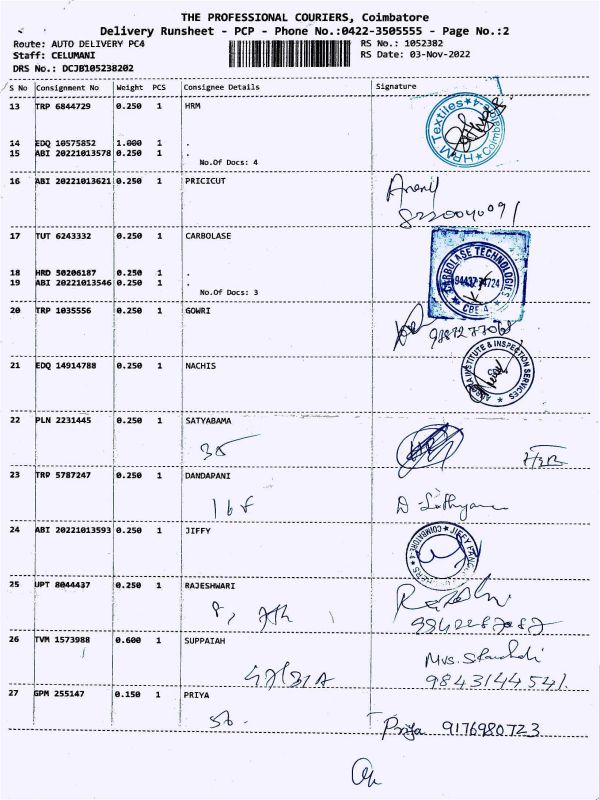 THE PROFESSIONAL COURIERS, Coimbatore
Delivery Runsheet - PCP - Phone No.:0422-3505555 - Page No.:2
Route: AUTO DELIVERY PC4 RS No.: 1052382
Staff: CELUMANI RS Date: 03-Nov-2022
DRS No.: DCJB105238202
S No Consignment No Weight PCS Consignee Details Signature
13 TRP 6844729 0.250 1 HRM
HPM Textiles
14 EDQ 10575852 1.000 1 .
15 ABI 20221013578 0.250 1 .
No.Of Docs: 4
16 ABI 20221013621 0.250 1 PRICICUT
17 TUT 6243332 0.250 1 CARBOLASE
CARBOLASE TECHNOLOGIES
CBE-4
18 HRD 50206187 0.250 1 .
19 ABI 20221013546 0.250 1 .
No.Of Docs: 3
20 TRP 1035556 0.250 1 GOWRI
21 EDQ 14914788 0.250 1 NACHIS
INSTITUTE & INSPECTION SERVICES
22 PLN 2231445 0.250 1 SATYABAMA
35
23 TRP 5787247 0.250 1 DANDAPANI
24 ABI 20221013593 0.250 1 JIFFY
COIMBATORE-4 JIFFY
25 UPT 8044437 0.250 1 RAJESHWARI
26 TVM 1573988 0.600 1 SUPPAIAH
9843144541
27 GPM 255147 0.150 1 PRIYA
50.
Priya 9176980723